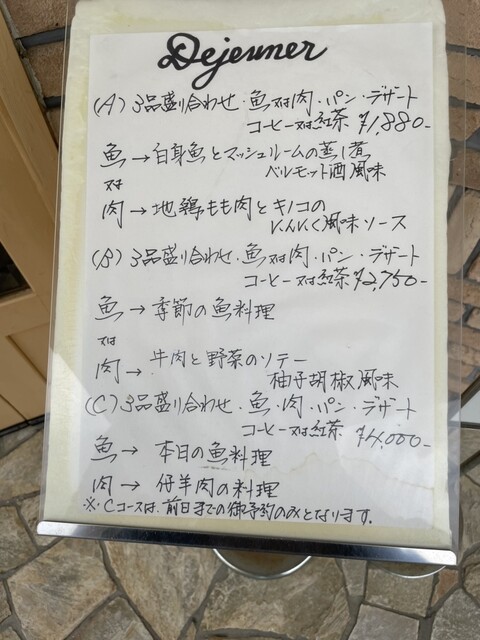 Dejeuner
(A) 3品盛り合わせ・魚又は肉・パン・デザート
コーヒー又は紅茶 ¥1,880-
魚→白身魚とマッシュルームの蒸し煮
ベルモット酒風味
又は
肉→地鶏もも肉とキノコの
にんにく風味ソース
(B) 3品盛り合わせ・魚又は肉・パン・デザート
コーヒー又は紅茶 ¥2,750-
魚→季節の魚料理
又は
肉→牛肉と野菜のソテー
柚子胡椒風味
(C) 3品盛り合わせ・魚・肉・パン・デザート
コーヒー又は紅茶 ¥4,000-
魚→本日の魚料理
肉→仔羊肉の料理
※・Cコースは、前日までの御予約のみとなります。